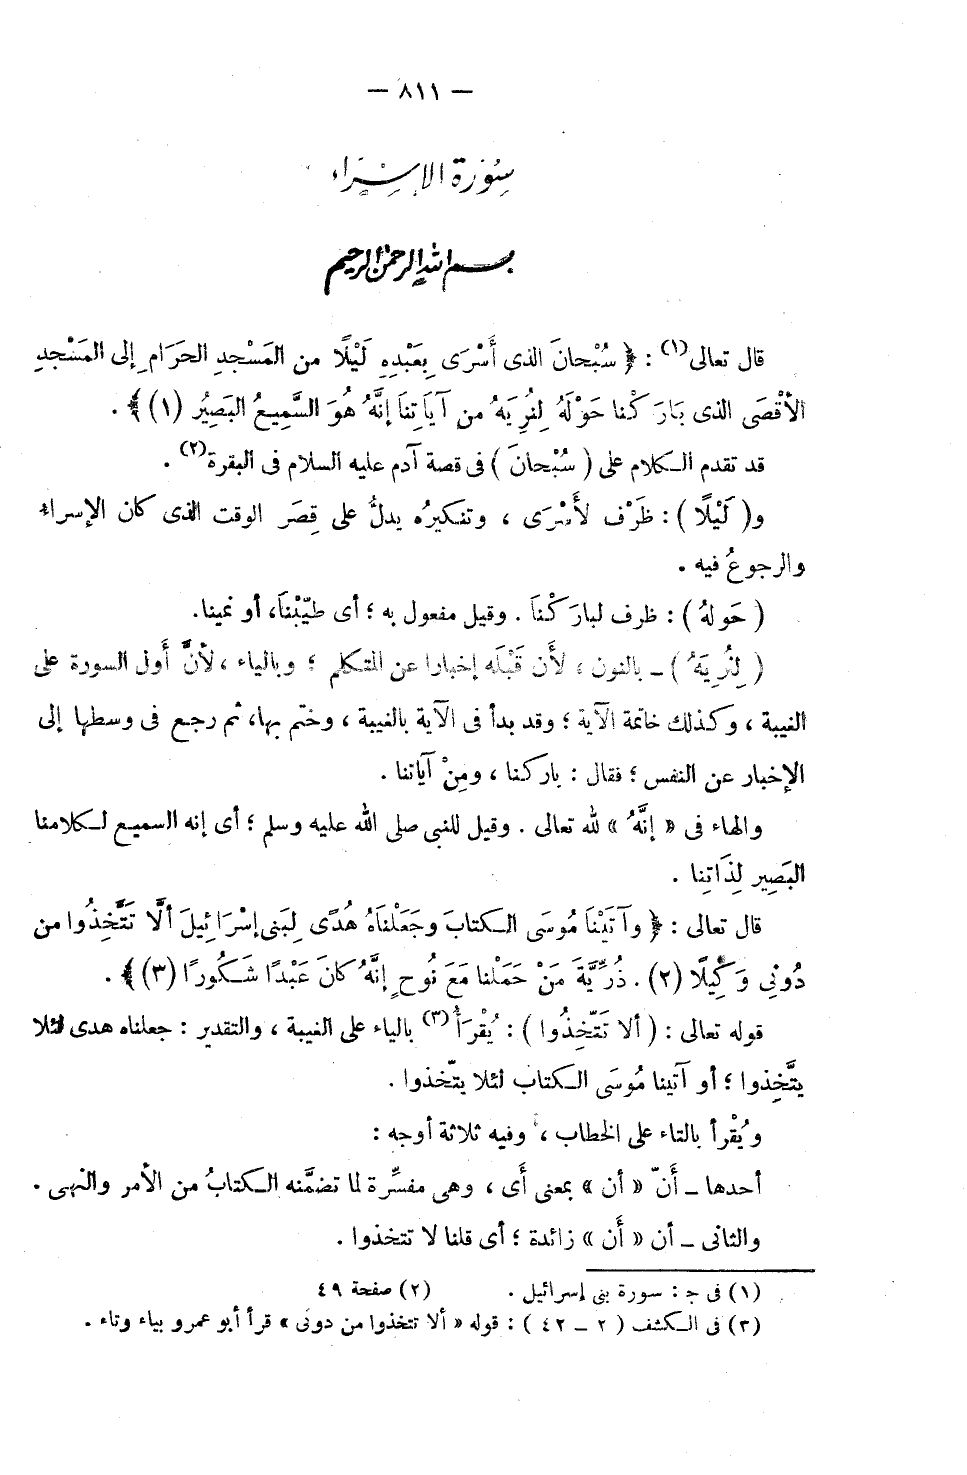 — ٨١١ —
سورة الإسراء
بسم الله الرحمن الرحيم
قال تعالى(١) : ﴿ سُبْحانَ الذى أَسْرَى بِعَبْدِهِ لَيْلًا من المَسْجدِ الحَرَام إلى المَسْجدِ
الأقْصَى الذى بَارَكْنا حَوْلَهُ لِنُرِيَهُ من آيَاتِنَا إنَّهُ هُوَ السَّمِيعُ البَصِيُر (١) ﴾ .
قد تقدم الكلام على ( سُبْحانَ ) فى قصة آدم عليه السلام فى البقرة(٢) .
و( لَيْلًا ) : ظَرْف لأَسْرَى ، وتنكيرُه يدلُّ على قِصَر الوقت الذى كان الإسراء
والرجوعُ فيه .
( حَولهُ ) : ظرف لبارَكْنَا . وقيل مفعول به ؛ أى طيّبْنَا، أو نمينا.
( لِنُرِيَهُ ) ـ بالنون ، لأَن قَبْلَه إخبارا عن المتكلم ؛ وبالياء ، لأنَّ أَول السورة على
الغيبة ، وكذلك خاتمة الآية ؛ وقد بدأ فى الآية بالغيبة ، وختم بها، ثم رجع فى وسطها إلى
الإخبار عن النفس ؛ فقال : باركنا ، ومِنْ آياتنا .
والهاء فى « إنَّهُ » لله تعالى . وقيل للنبى صلى الله عليه وسلم ؛ أى إنه السميع لكلامنا
البَصِير لِذَاتِنا .
قال تعالى : ﴿ وآتَيْنَا مُوسَى الكتابَ وجَعَلْناَهُ هُدًى لِبَنِى إسْرَائِيلَ ألَّا تَتَّخِذُوا من
دُونِى وَكِيلًا (٢). ذُرِّيَّةَ مَنْ حَمَلْنا مَعَ نُوحٍ إنَّهُ كانَ عَبْدًا شَكُورًا (٣) ﴾ .
قوله تعالى : ( ألا تَتّخِذُوا ) : يُقْرَأُ(٣) بالياء على الغيبة ، والتقدير : جعلناه هدى لئلا
يتَّخِذوا ؛ أو آتينا مُوسَى الكتاب لئلا يتّخذوا .
ويُقْرأ بالتاء على الخطاب ، وفيه ثلاثة أوجه :
أحدها ـ أَنّ « أن » بمعنى أَى ، وهى مفسِّرة لما تضمَّنه الكتابُ من الأمر والنهى .
والثانى ـ أن « أَن » زائدة ؛ أى قلنا لا تتخذوا .
(١) فى ج : سورة بنى إسرائيل . (٢) صفحة ٤٩
(٣) فى الكشف ( ٢ ـ ٤٢ ) : قوله « ألا تتخذوا من دونى » قرأ أبو عمرو بياء وتاء .